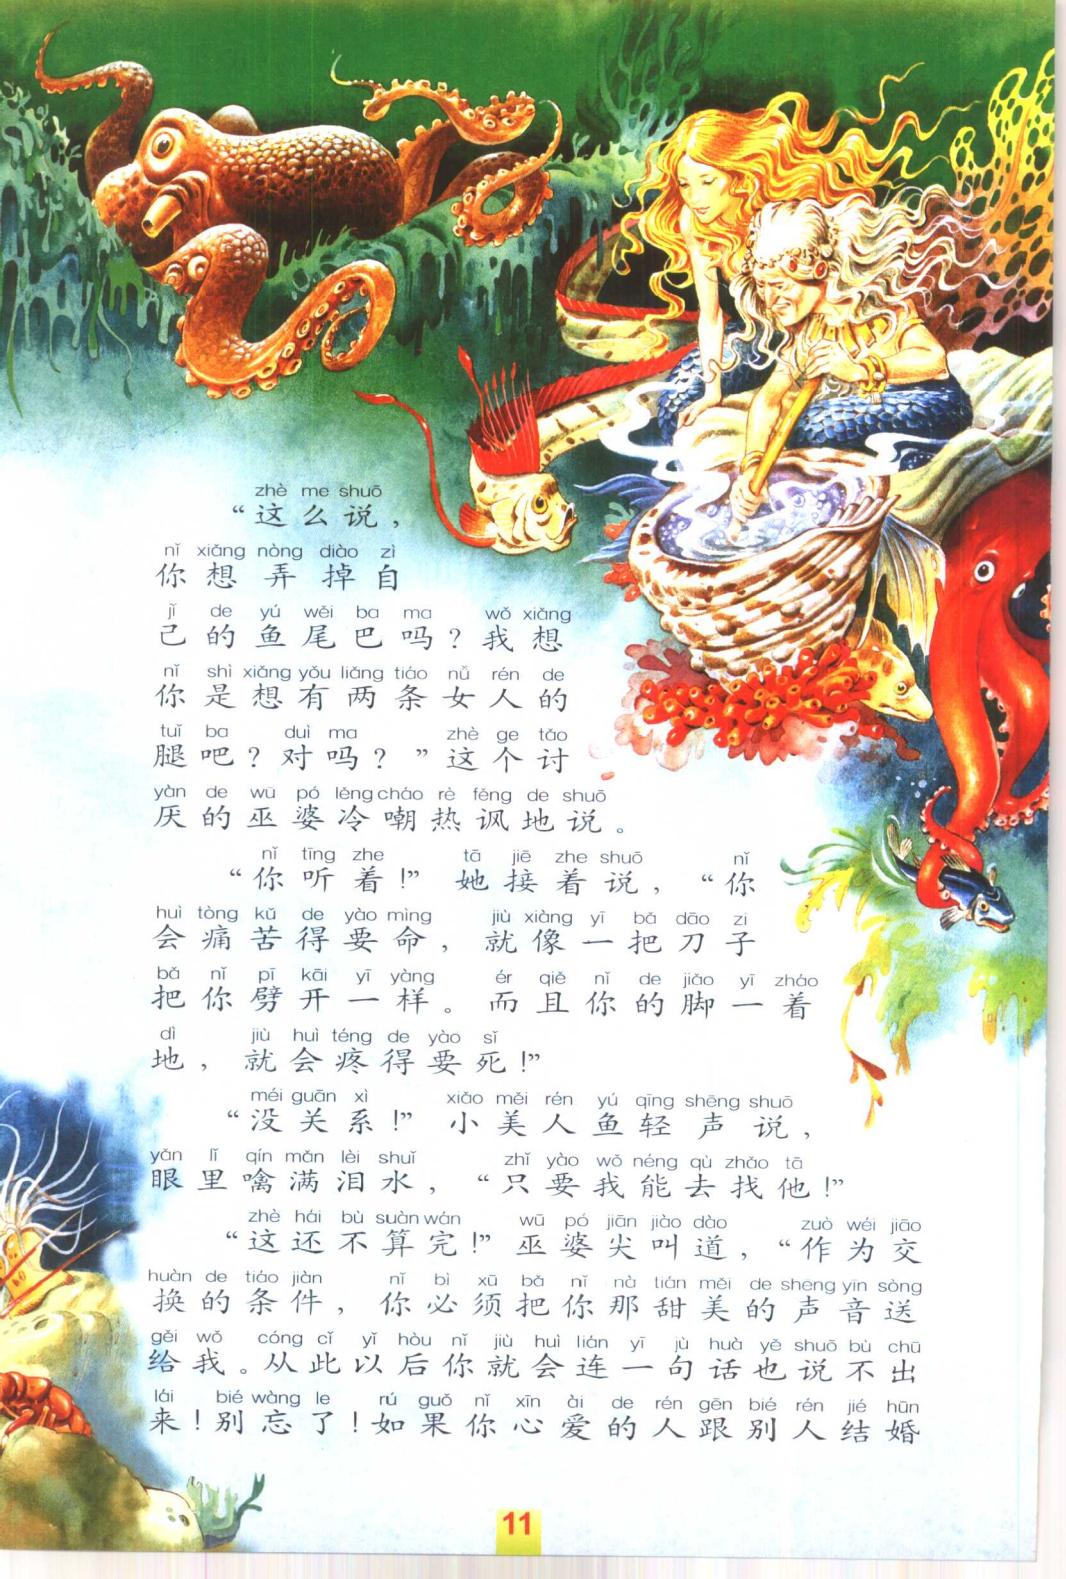 zhè me shuō
“这么说，
nǐ xiǎng nòng diào zì
你想弄掉自
jǐ de yú wěi ba ma wǒ xiǎng
己的鱼尾巴吗？我想
nǐ shì xiǎng yǒu liǎng tiáo nǚ rén de
你是想有两条女人的
tuǐ ba duì ma zhè ge tǎo
腿吧？对吗？”这个讨
yàn de wū pó lěng cháo rè fěng de shuō
厌的巫婆冷嘲热讽地说。
nǐ tīng zhe tā jiē zhe shuō nǐ
“你听着！”她接着说，“你
huì tòng kǔ de yào mìng jiù xiàng yī bǎ dāo zi
会痛苦得要命，就像一把刀子
bǎ nǐ pī kāi yī yàng ér qiě nǐ de jiǎo yī zháo
把你劈开一样。而且你的脚一着
dì jiù huì téng de yào sǐ
地，就会疼得要死！”
méi guān xì xiǎo měi rén yú qīng shēng shuō
“没关系！”小美人鱼轻声说，
yǎn lǐ qín mǎn lèi shuǐ zhǐ yào wǒ néng qù zhǎo tā
眼里噙满泪水，“只要我能去找他！”
zhè hái bù suàn wán wū pó jiān jiào dào zuò wéi jiāo
“这还不算完！”巫婆尖叫道，“作为交
huàn de tiáo jiàn nǐ bì xū bǎ nǐ nà tián měi de shēng yīn sòng
换的条件，你必须把你那甜美的声音送
gěi wǒ cóng cǐ yǐ hòu nǐ jiù huì lián yī jù huà yě shuō bù chū
给我。从此以后你就会连一句话也说不出
lái bié wàng le rú guǒ nǐ xīn ài de rén gēn bié rén jié hūn
来！别忘了！如果你心爱的人跟别人结婚
11